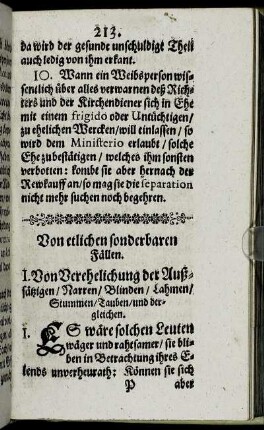 213.
da wird der gesunde unschuldige Theil
auch ledig von ihm erkant.
10. Wann ein Weibsperson wis-
sentlich über alles verwarnen deß Rich-
ters und der Kirchendiener sich in Ehe
mit einem frigido oder Untüchtigen /
zu ehelichen Wercken / will einlassen / so
wird dem Ministerio erlaubt / solche
Ehe zubestätigen / welches ihm sonsten
verbotten: kombt sie aber hernach der
Rewkauff an / so mag sie die separation
nicht mehr suchen noch begehren.
Von etlichen sonderbaren
Fällen.
I. Von Verehelichung der Auß-
sätzigen / Narren / Blinden / Lahmen /
Stummen / Tauben / und der-
gleichen.
1. ES wäre solchen Leuten
wäger und rahtsamer / sie bli-
ben in Betrachtung ihres E-
lends unverheurath: Können sie sich
P aber